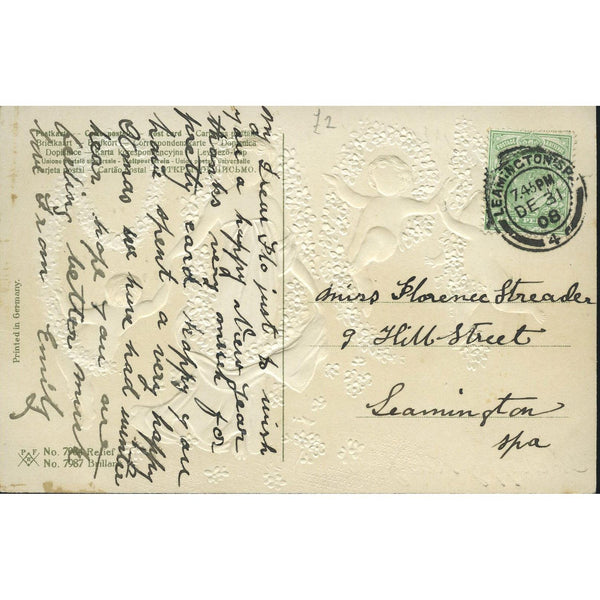 £2
Postkarte - Carte postale - Post card - Cartolina postale
Briefkaart - Correspondenzkarte - Dopisnica
Dopisnice - Karta korespondencyjna - Levelező-Lap
Unione postale universale - Weltpostverein - Union postale universelle
Tarjeta postal - Cartão postal - ОТКРЫТОЕ ПИСЬМО.
My Dear Flo just to wish
you a happy New Year
thanks very much for
pretty card happy you
have spent a very happy
Xmas we have had
hear hope you are
feeling better much
love from Emily
LEAMINGTON SPA
7.45 PM
DE 31
06
4
Miss Florence Streader
9 Hill Street
Leamington
Spa
Printed in Germany.
P F B
No. 7984 Relief
No. 7987 Brillant